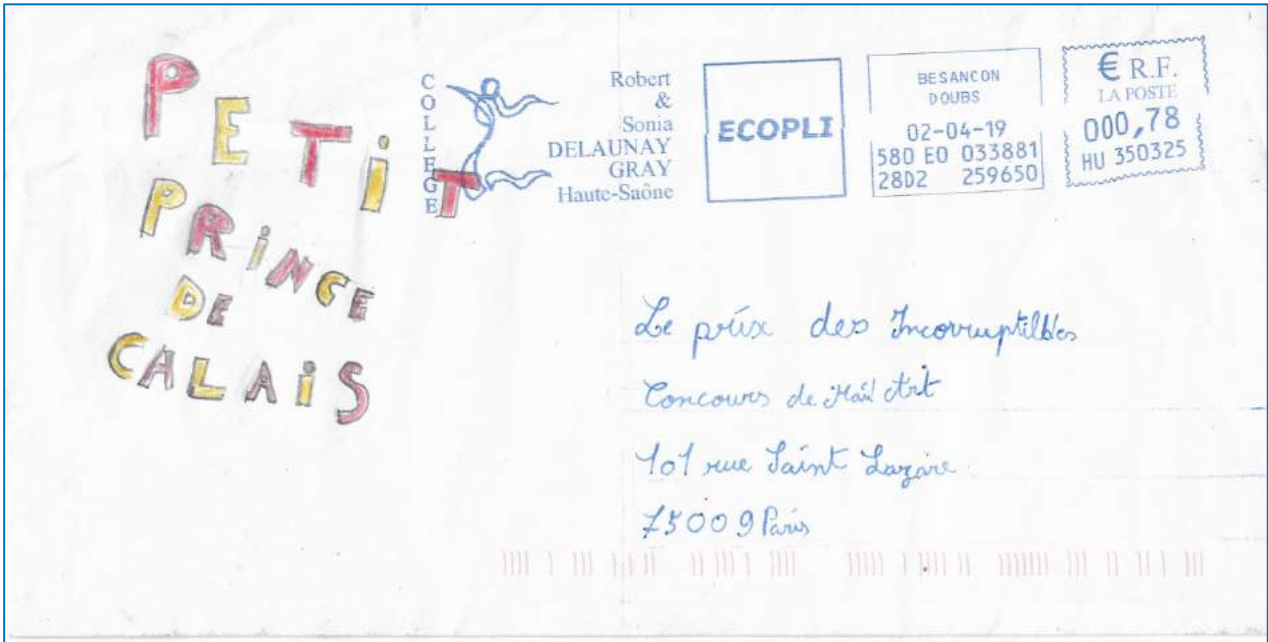 PETIT
PRINCE
DE
CALAIS
COLLEGE
Robert
&
Sonia
DELAUNAY
GRAY
Haute-Saône
ECOPLI
BESANCON
DOUBS
02-04-19
580 E0 033881
28D2 259650
€ R.F.
LA POSTE
000,78
HU 350325
Le prix des Incorruptilbles
Concours de Mail Art
101 rue Saint Lazare
75009 Paris